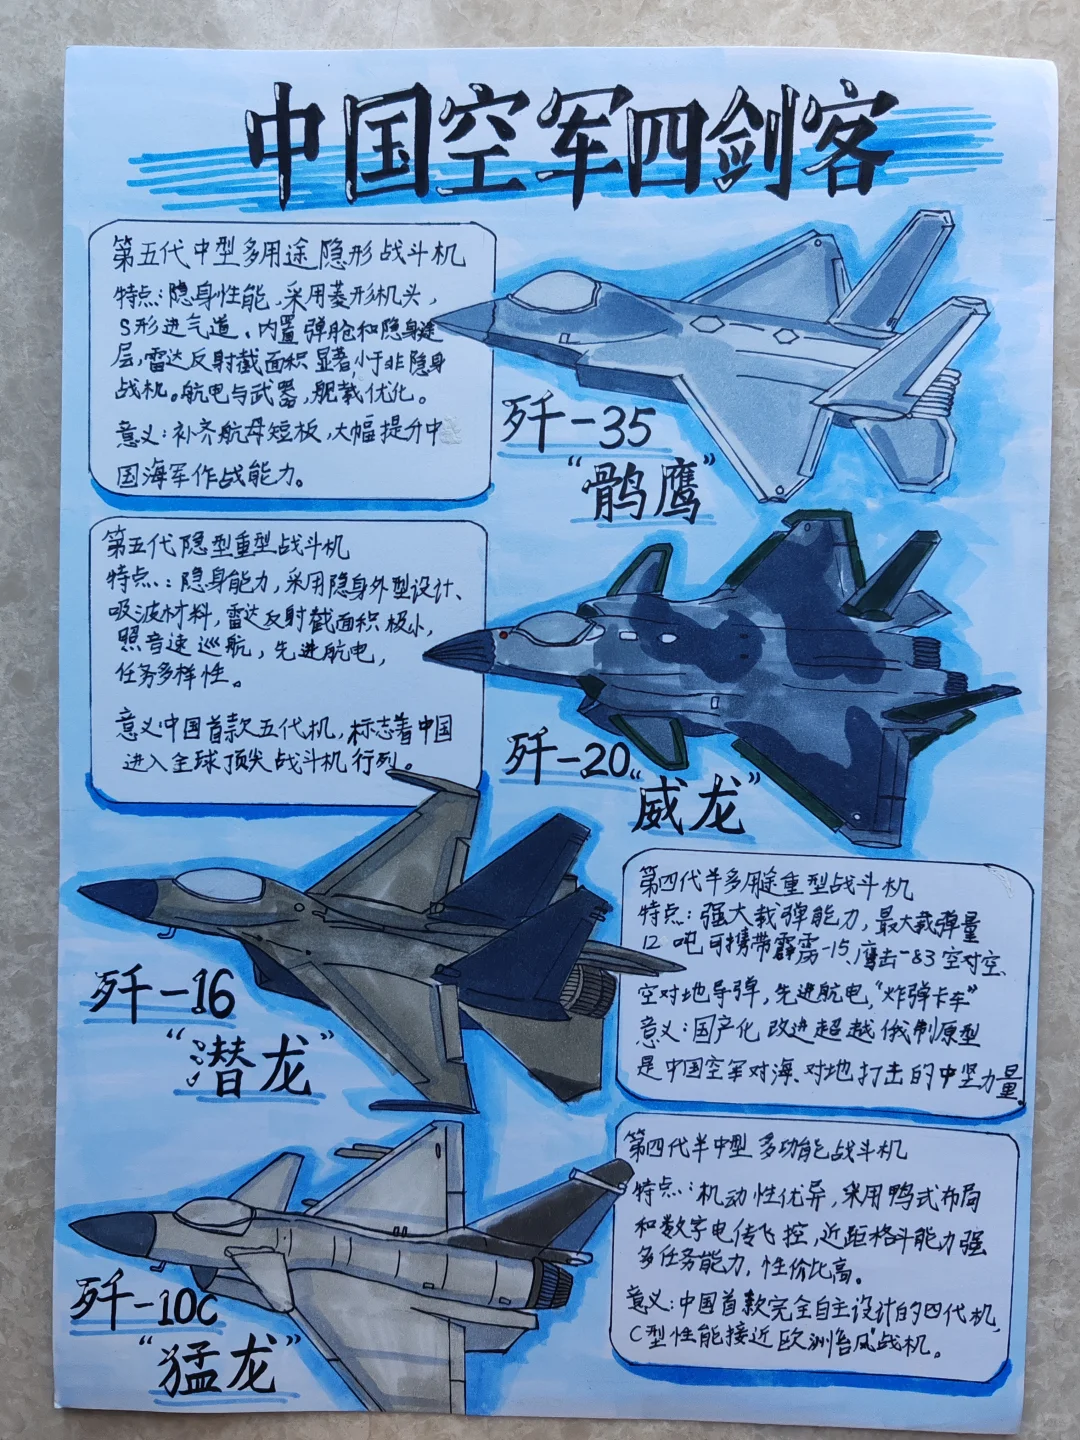 中国空军四剑客
第五代中型多用途隐形战斗机
特点:隐身性能,采用菱形机头,
S形进气道、内置弹舱和隐身涂
层,雷达反射截面积显著小于非隐身
战机。航电与武器,舰载优化。
意义:补齐航母短板,大幅提升中
国海军作战能力。
歼-35
“鹘鹰”
第五代隐型重型战斗机
特点:隐身能力,采用隐身外型设计、
吸波材料,雷达反射截面积极小,
照音速巡航,先进航电,
任务多样性。
意义:中国首款五代机,标志着中国
进入全球顶尖战斗机行列。
歼-20
“威龙”
第四代半多用途重型战斗机
特点:强大载弹能力,最大载弹量
12吨可携带霹雳-15、鹰击-83空对空、
空对地导弹,先进航电,“炸弹卡车”
意义:国产化改进超越俄制原型
是中国空军对海、对地打击的中坚力量。
歼-16
“潜龙”
第四代半中型多功能战斗机
特点:机动性优异,采用鸭式布局
和数字电传飞控,近距格斗能力强
多任务能力,性价比高。
意义:中国首款完全自主设计的四代机,
C型性能接近欧洲“台风”战机。
歼-10C
“猛龙”